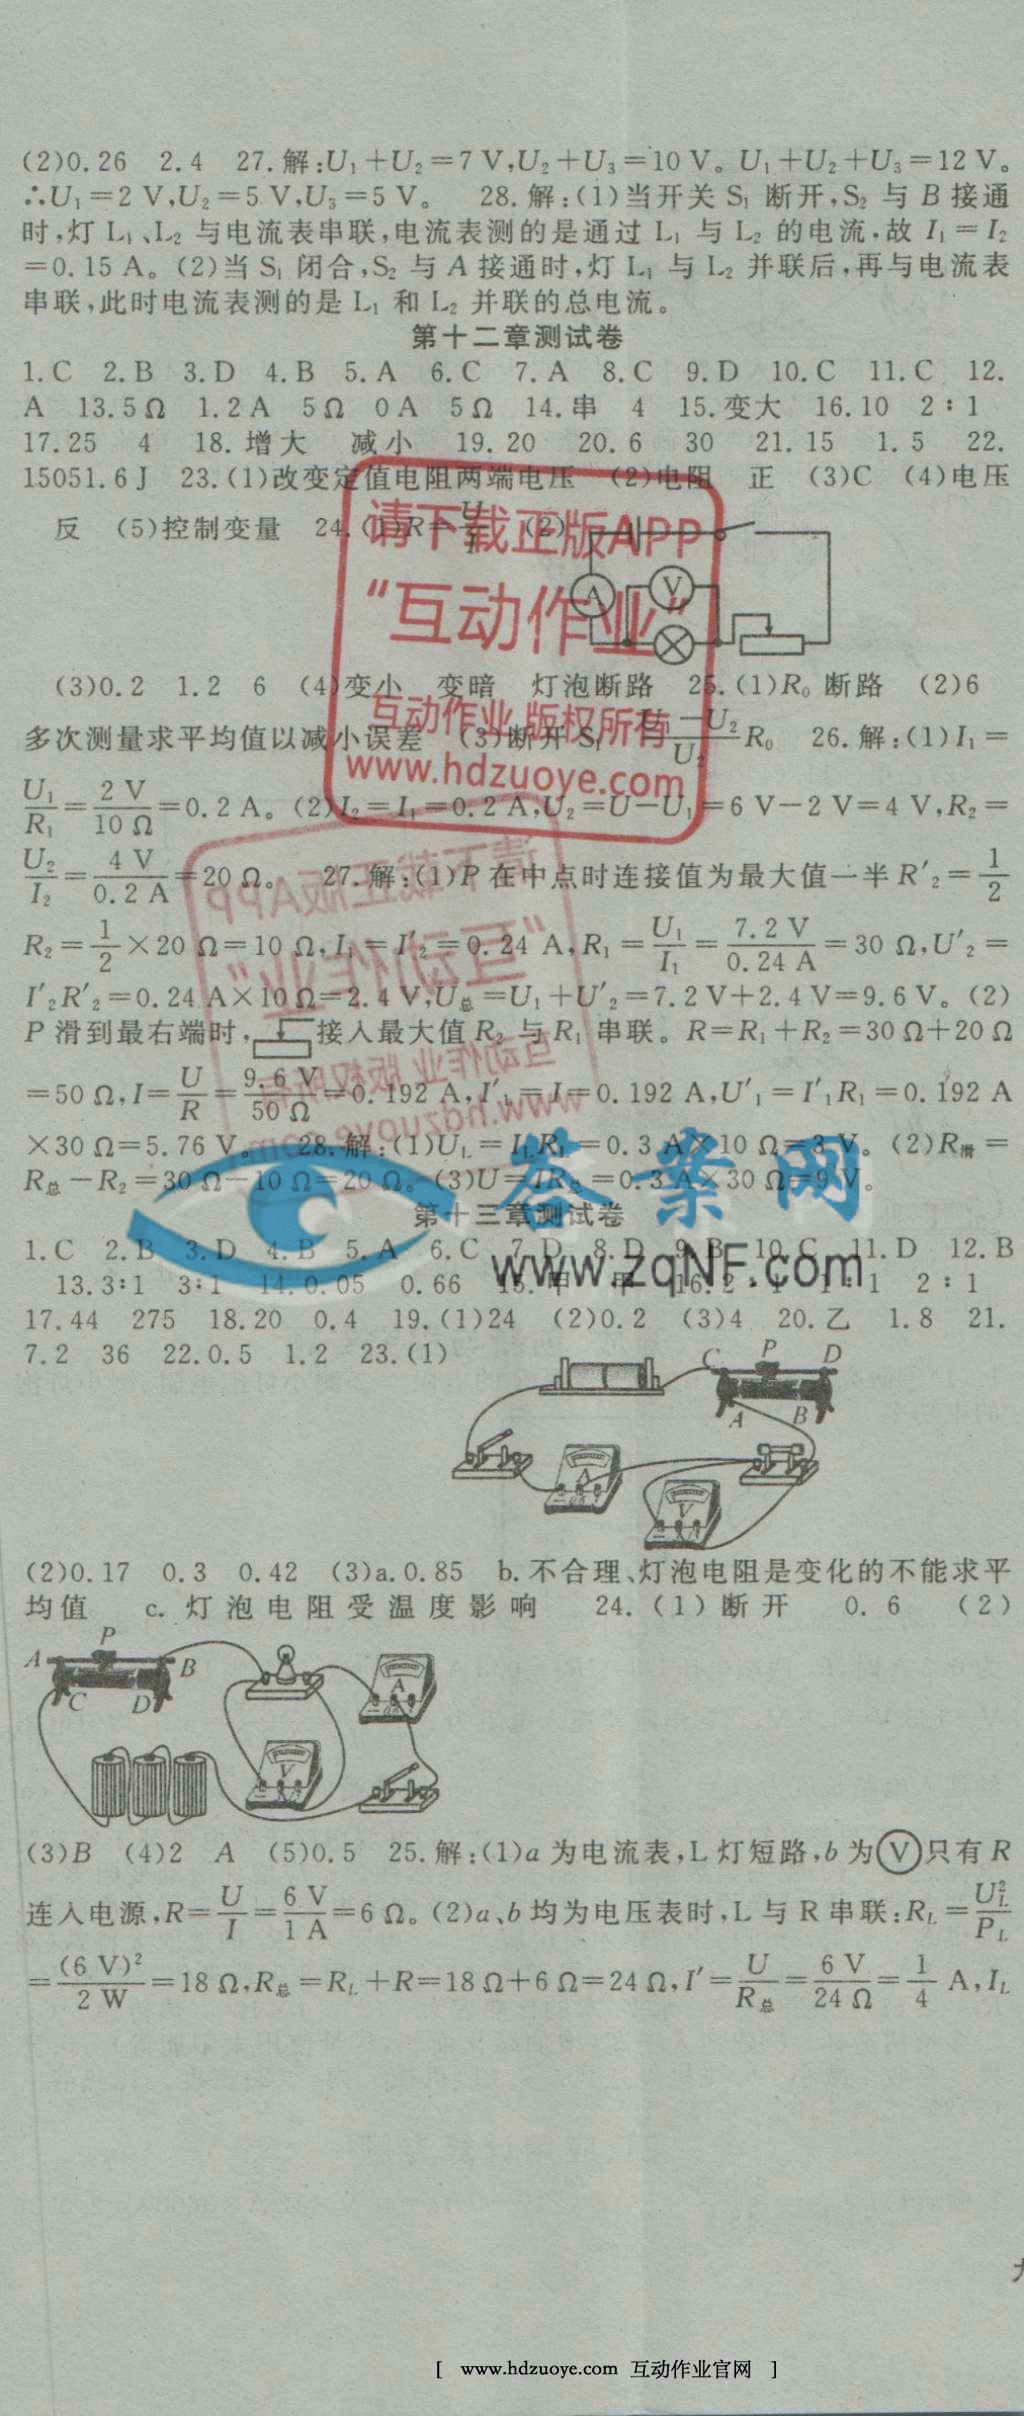 (2)0.26 2.4 27.解:U₁+U₂=7 V,U₂+U₃=10 V。U₁+U₂+U₃=12 V。
∴U₁=2 V,U₂=5 V,U₃=5 V。 28.解:(1)当开关 S₁ 断开,S₂ 与 B 接通
时,灯 L₁、L₂ 与电流表串联,电流表测的是通过 L₁ 与 L₂ 的电流,故 I₁=I₂
=0.15 A。(2)当 S₁ 闭合,S₂ 与 A 接通时,灯 L₁ 与 L₂ 并联后,再与电流表
串联,此时电流表测的是 L₁ 和 L₂ 并联的总电流。
第十二章测试卷
1.C 2.B 3.D 4.B 5.A 6.C 7.A 8.C 9.D 10.C 11.C 12.
A 13.5 Ω 1.2 A 5 Ω 0 A 5 Ω 14.串 4 15.变大 16.10 2∶1
17.25 4 18.增大 减小 19.20 20.6 30 21.15 1.5 22.
15051.6 J 23.(1)改变定值电阻两端电压 (2)电阻 正 (3)C (4)电压
反 (5)控制变量 24.(1)R=U/I (2)
A V
请下载正版APP
“互动作业”
互动作业 版权所有
www.hdzuoye.com
(3)0.2 1.2 6 (4)变小 变暗 灯泡断路 25.(1)R₀ 断路 (2)6
多次测量求平均值以减小误差 (3)断开 S₁ (U₁-U₂)/U₂ R₀ 26.解:(1)I₁=
U₁/R₁=2 V/10 Ω=0.2 A。(2)I₂=I₁=0.2 A,U₂=U-U₁=6 V-2 V=4 V,R₂=
U₂/I₂=4 V/0.2 A=20 Ω。 27.解:(1)P 在中点时连接值为最大值一半 R′₂=1/2
R₂=1/2×20 Ω=10 Ω,I₁=I′₂=0.24 A,R₁=U₁/I₁=7.2 V/0.24 A=30 Ω,U′₂=
I′₂R′₂=0.24 A×10 Ω=2.4 V,U总=U₁+U′₂=7.2 V+2.4 V=9.6 V。(2)
P 滑到最右端时, 接入最大值 R₂ 与 R₁ 串联。R=R₁+R₂=30 Ω+20 Ω
=50 Ω,I=U/R=9.6 V/50 Ω=0.192 A,I′₁=I=0.192 A,U′₁=I′₁R₁=0.192 A
×30 Ω=5.76 V。 28.解:(1)U_L=I_L R_L=0.3 A×10 Ω=3 V。(2)R滑=
R总-R₂=30 Ω-10 Ω=20 Ω。(3)U=IR总=0.3 A×30 Ω=9 V。
答案网
www.zqNF.com
第十三章测试卷
1.C 2.B 3.D 4.B 5.A 6.C 7.D 8.D 9.B 10.C 11.D 12.B
13.3∶1 3∶1 14.0.05 0.66 15.甲 甲 16.2∶1 1∶1 2∶1
17.44 275 18.20 0.4 19.(1)24 (2)0.2 (3)4 20.乙 1.8 21.
7.2 36 22.0.5 1.2 23.(1)
C P D
A B
A
V
(2)0.17 0.3 0.42 (3)a.0.85 b.不合理、灯泡电阻是变化的不能求平
均值 c.灯泡电阻受温度影响 24.(1)断开 0.6 (2)
P
A B
C D
A
V
(3)B (4)2 A (5)0.5 25.解:(1)a 为电流表,L 灯短路,b 为Ⓥ只有 R
连入电源,R=U/I=6 V/1 A=6 Ω。(2)a、b 均为电压表时,L 与 R 串联:R_L=U_L²/P_L
=(6 V)²/2 W=18 Ω,R总=R_L+R=18 Ω+6 Ω=24 Ω,I′=U/R总=6 V/24 Ω=1/4 A,I_L
[ www.hdzuoye.com 互动作业官网 ]